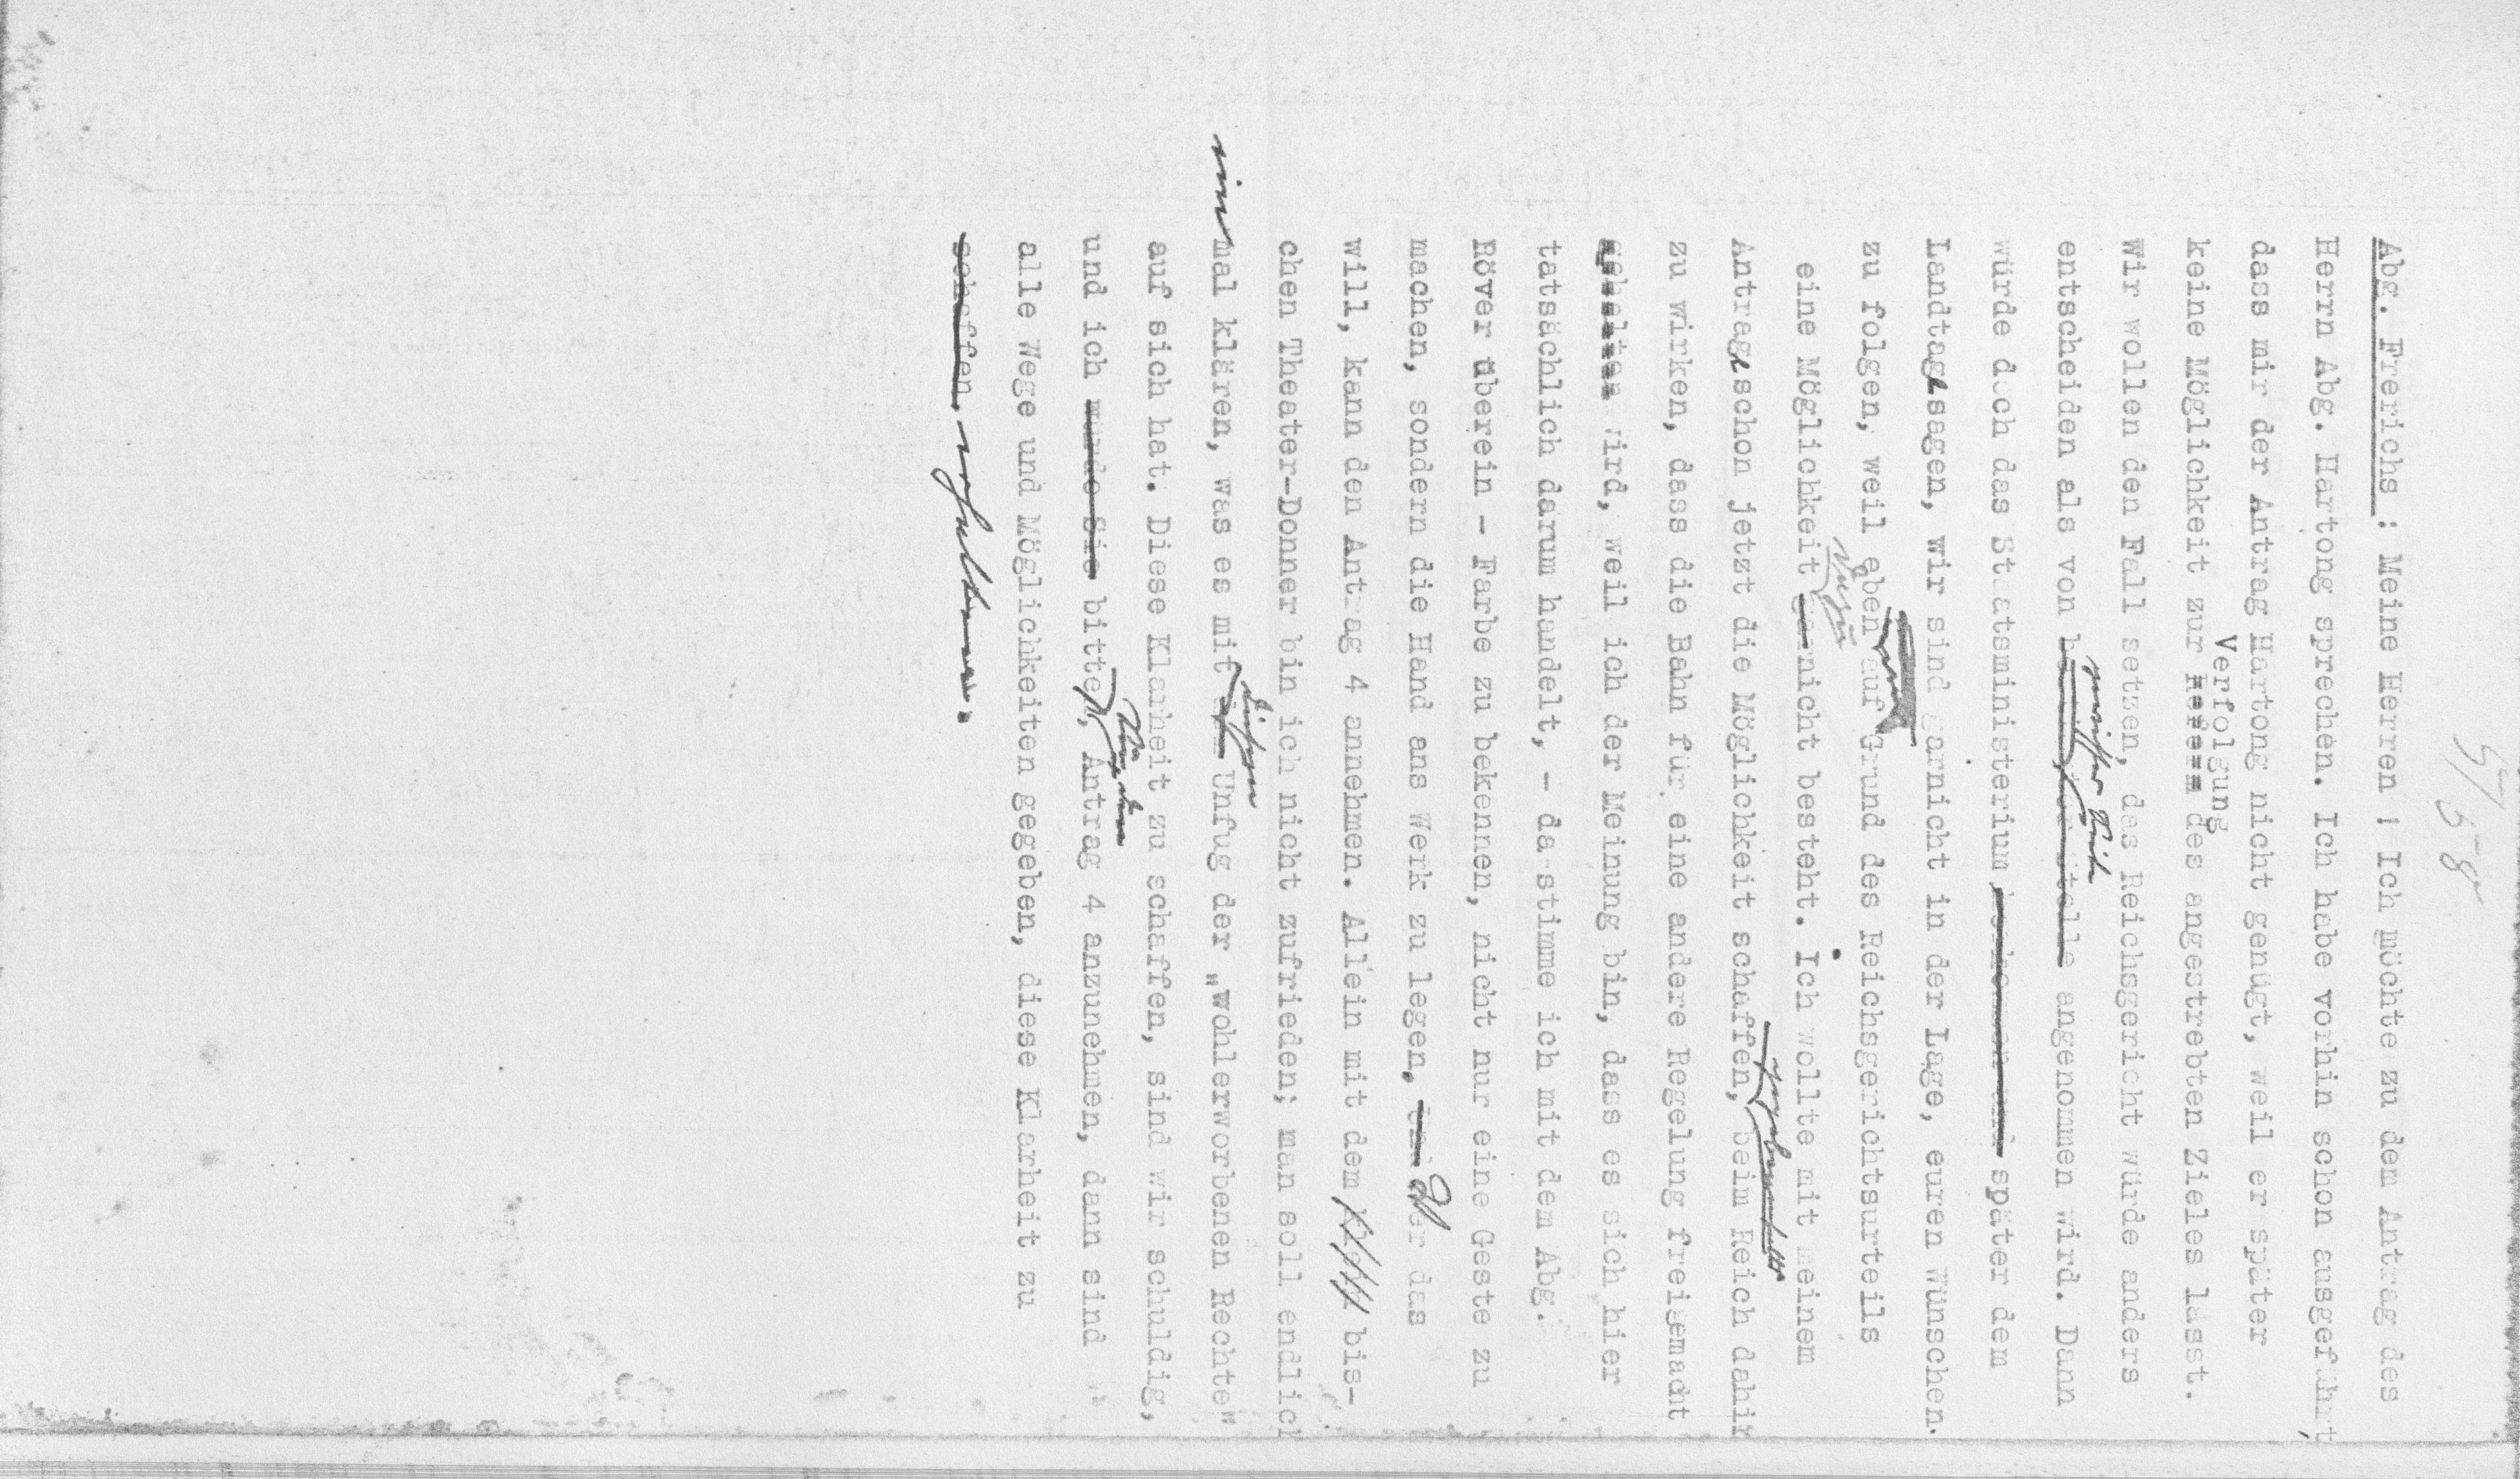 5/58
Abg. Frerichs : Meine Herren ! Ich möchte zu dem Antrag des
Herrn Abg. Hartong sprechen. Ich habe vorhin schon ausgeführt,
dass mir der Antrag Hartong nicht genügt, weil er später
Verfolgung
keine Möglichkeit zur des angestrebten Zieles lässt.
Wir wollen den Fall setzen, das Reichsgericht würde anders
gewisser Seite
entscheiden als von angenommen wird. Dann
würde doch das Staatsministerium später dem
Landtage sagen, wir sind garnicht in der Lage, euren Wünschen
zu folgen, weil eben auf Grund des Reichsgerichtsurteils
dazu
eine Möglichkeit garnicht besteht. Ich wollte mit meinem
Antrage schon jetzt die Möglichkeit schaffen, beim Reich dahin
gegebenenfalls
zu wirken, dass die Bahn für eine andere Regelung freigemacht
wird, weil ich der Meinung bin, dass es sich hier
tatsächlich darum handelt, - da stimme ich mit dem Abg.
Röver überein - Farbe zu bekennen, nicht nur eine Geste zu
machen, sondern die Hand ans Werk zu legen. Wer das
will, kann den Antrag 4 annehmen. Allein mit dem bis-
chen Theater-Donner bin ich nicht zufrieden; man soll endlich
diesem
einmal klären, was es mit Unfug der „wohlerworbenen Rechte"
auf sich hat. Diese Klarheit zu schaffen, sind wir schuldig,
und ich bitte, Antrag 4 anzunehmen, dann sind
alle Wege und Möglichkeiten gegeben, diese Klarheit zu
schaffen.